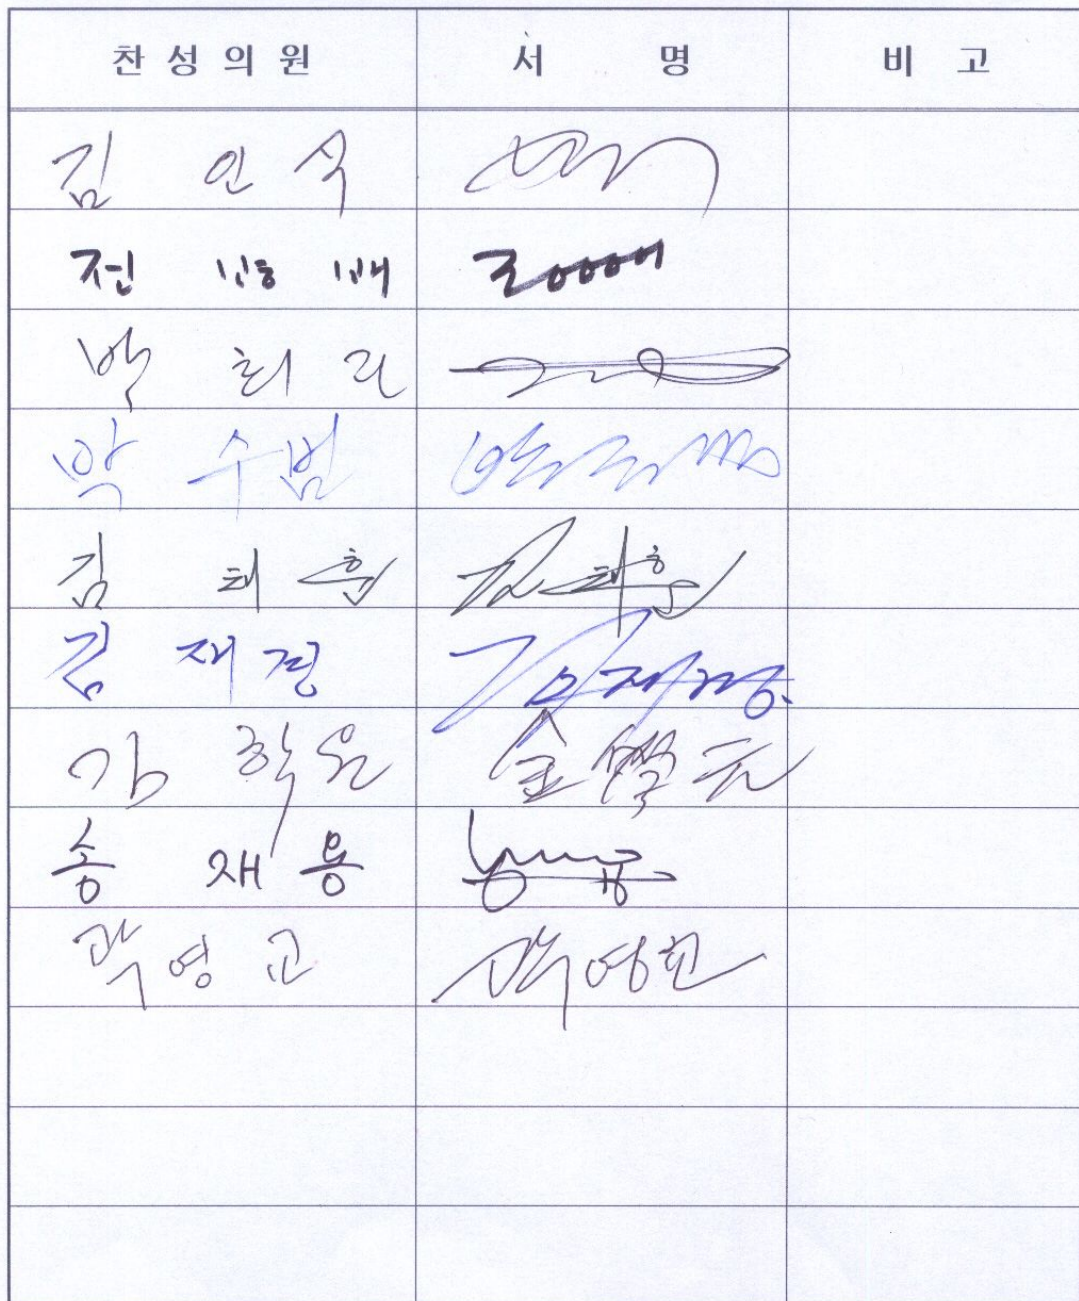 찬성의원 서 명 비 고
김 인 식
전 병 배
박 희 진
박 수 범 박수범
김 태 훈 김태훈
김 재 경 김재경
김 학 원 金學元
송 재 용
곽 영 교 곽영교